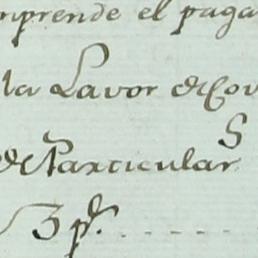 mprende el paga
la Lavor de Cov
de Particular S
3 p.s